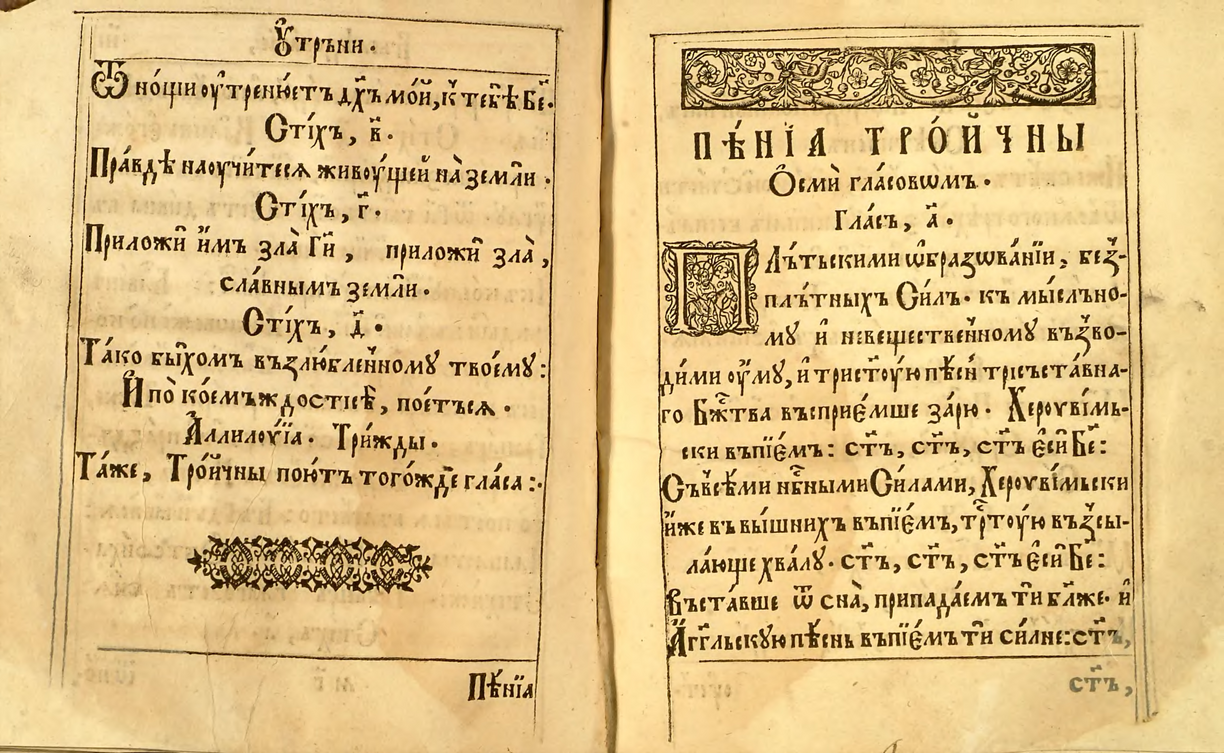 Ѹ҆трьни.
Ѿ но́щи ѹ҆́тренюетъ дх҃ъ мо́й, к̾ тебѣ̀ Бе҃.
Сті́хъ, в҃.
Пра́вдѣ наѹчи́теся живѹ́щеи на̀ земли̂.
Сті́хъ, г҃.
Приложѝ и҆̀мъ зла̀ Гѝ, приложѝ зла̀,
сла́внымъ земли̂.
Сті́хъ, д҃.
Та́ко бы́хомъ възлю́бленномꙋ твоемꙋ̀:
И҆̀ по̀ коемъждо стисѣ̀, пое́тъся.
А҆ллилѹ́їа. Три́жды.
Та́же, Тро́йчны пою́тъ того́жде гла́са:.
Пѣ́нїа
ПѢ́НЇА ТРО́ЙЧНЫ
Ѻ҆сми̂ гла́совѡмъ.
Гла́съ, а҃.
Плъ́тьскими ѡ҆́бразѡва́нїи, без̾-
плъ́тныхъ Си́лъ. къ мы́слъно-
мꙋ и҆ невеще́ственномꙋ въз̾во-
ди́ми ѹ҆мꙋ, и҆ трист҃ѹ́ю пѣ́снїю трїсъста́вна-
го Бж҃тва въсприе́мше за́рю. Херѹви́мь-
ски въпїе́мъ: ст҃ъ, ст҃ъ, ст҃ъ є҆си̂ Бе҃:
Съв̾сѣ́ми нб҃ными Си́лами, Херѹви́мьски
и҆́же въ вы́шнихъ въпїе́мъ, тр҃тѹ́ю въз̾сы-
ла́юще хвалꙋ̀. ст҃ъ, ст҃ъ, ст҃ъ є҆си̂ Бе҃:
Въста́вше ѿ сна̀, припада́емъ ти̂ бл҃же. и҆
А҆гг҃льскꙋю пѣ́снь въпїе́мъ ти̂ си́лне: ст҃ъ,
ст҃ъ,